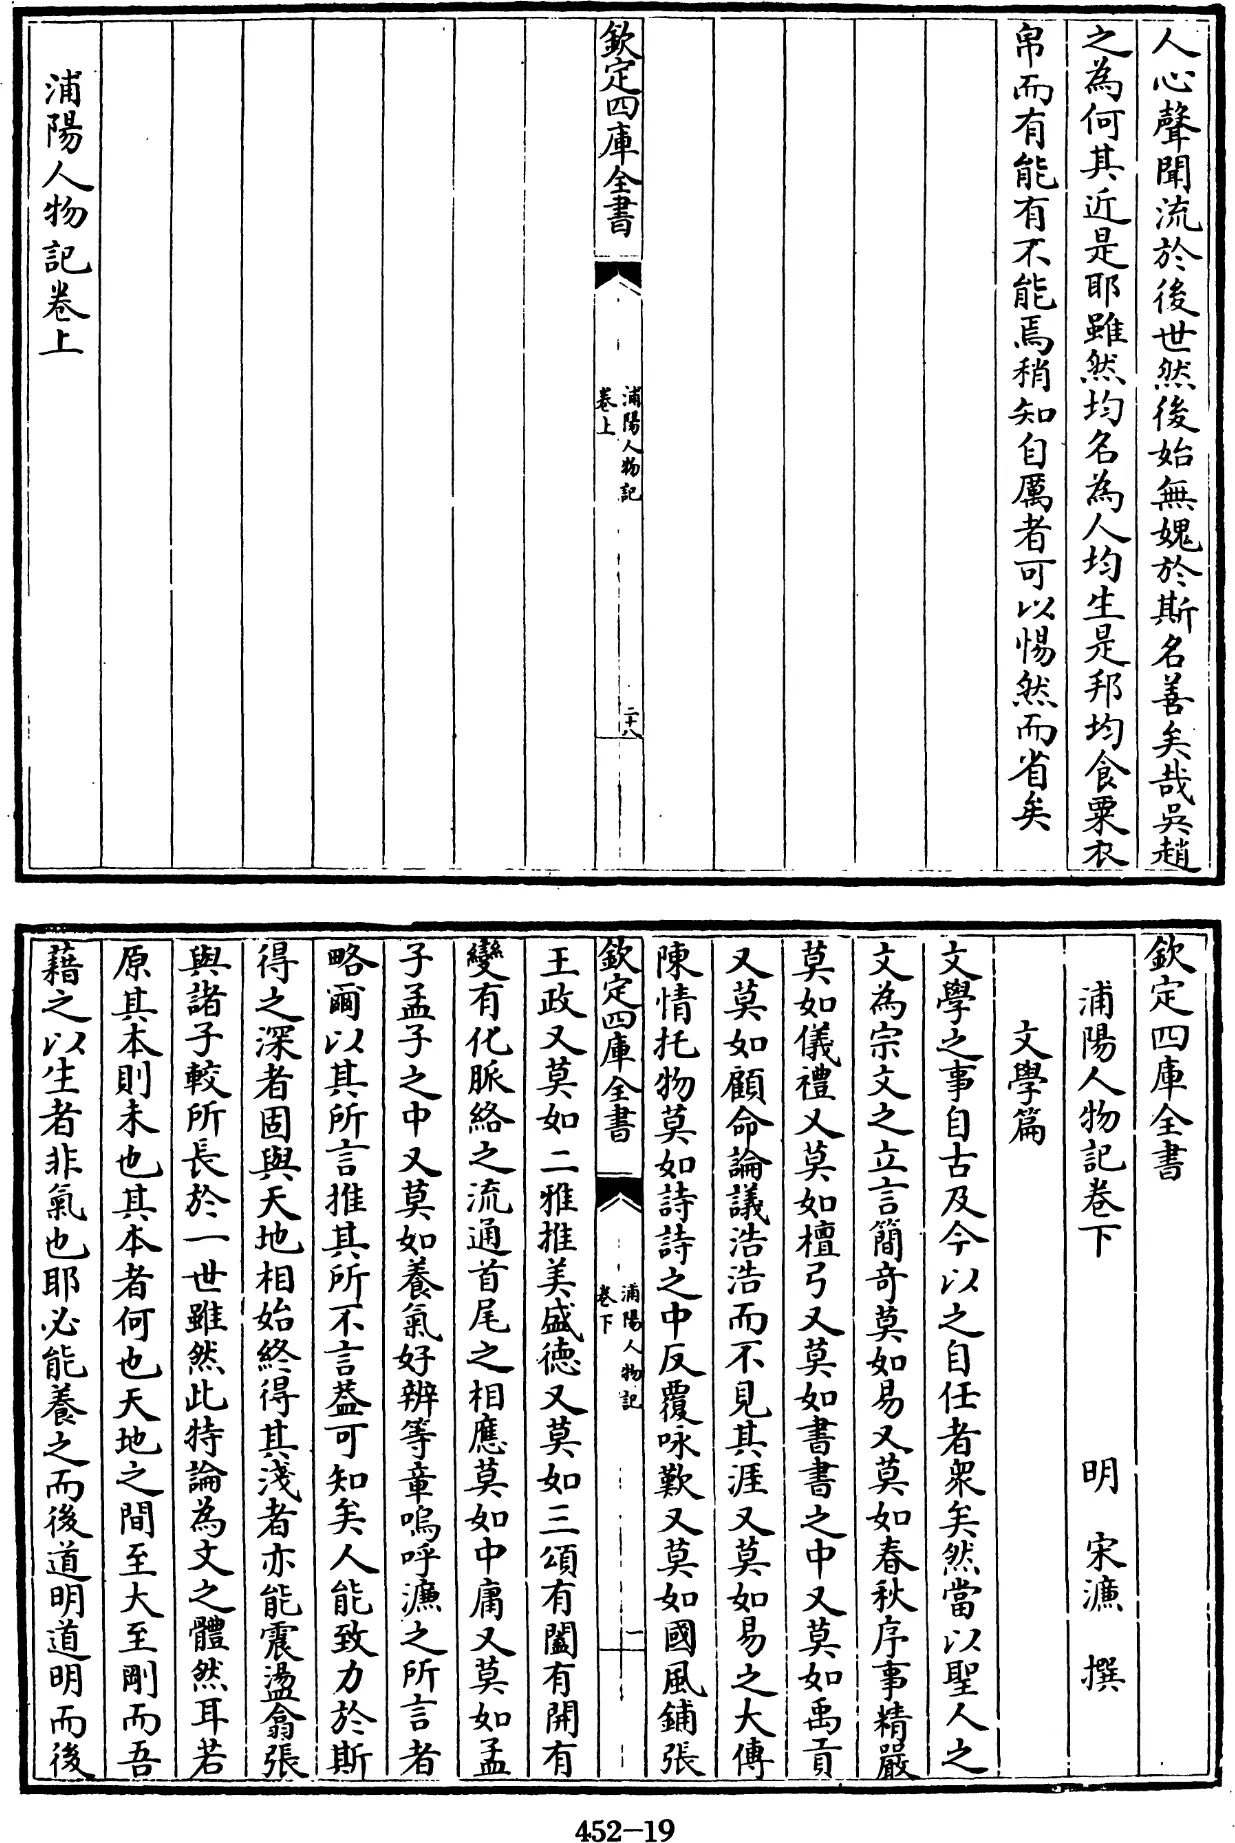 人心聲聞流於後世然後始無媿於斯名善矣哉吳趙
之為何其近是耶雖然均名為人均生是邦均食粟衣
帛而有能有不能焉稍知自厲者可以惕然而省矣
欽定四庫全書
浦陽人物記
卷上
二十八
浦陽人物記卷上
欽定四庫全書
浦陽人物記卷下
明 宋濂 撰
文學篇
文學之事自古及今以之自任者衆矣然當以聖人之
文為宗文之立言簡奇莫如易又莫如春秋序事精嚴
莫如儀禮又莫如檀弓又莫如書書之中又莫如禹貢
又莫如顧命論議浩浩而不見其涯又莫如易之大傳
陳情托物莫如詩詩之中反覆咏歎又莫如國風鋪張
欽定四庫全書
浦陽人物記
卷下
一
王政又莫如二雅推美盛德又莫如三頌有闔有開有
變有化脈絡之流通首尾之相應莫如中庸又莫如孟
子孟子之中又莫如養氣好辨等章嗚呼濂之所言者
略爾以其所言推其所不言葢可知矣人能致力於斯
得之深者固與天地相始終得其淺者亦能震盪翕張
與諸子較所長於一世雖然此特論為文之體然耳若
原其本則未也其本者何也天地之間至大至剛而吾
藉之以生者非氣也耶必能養之而後道明道明而後
452-19